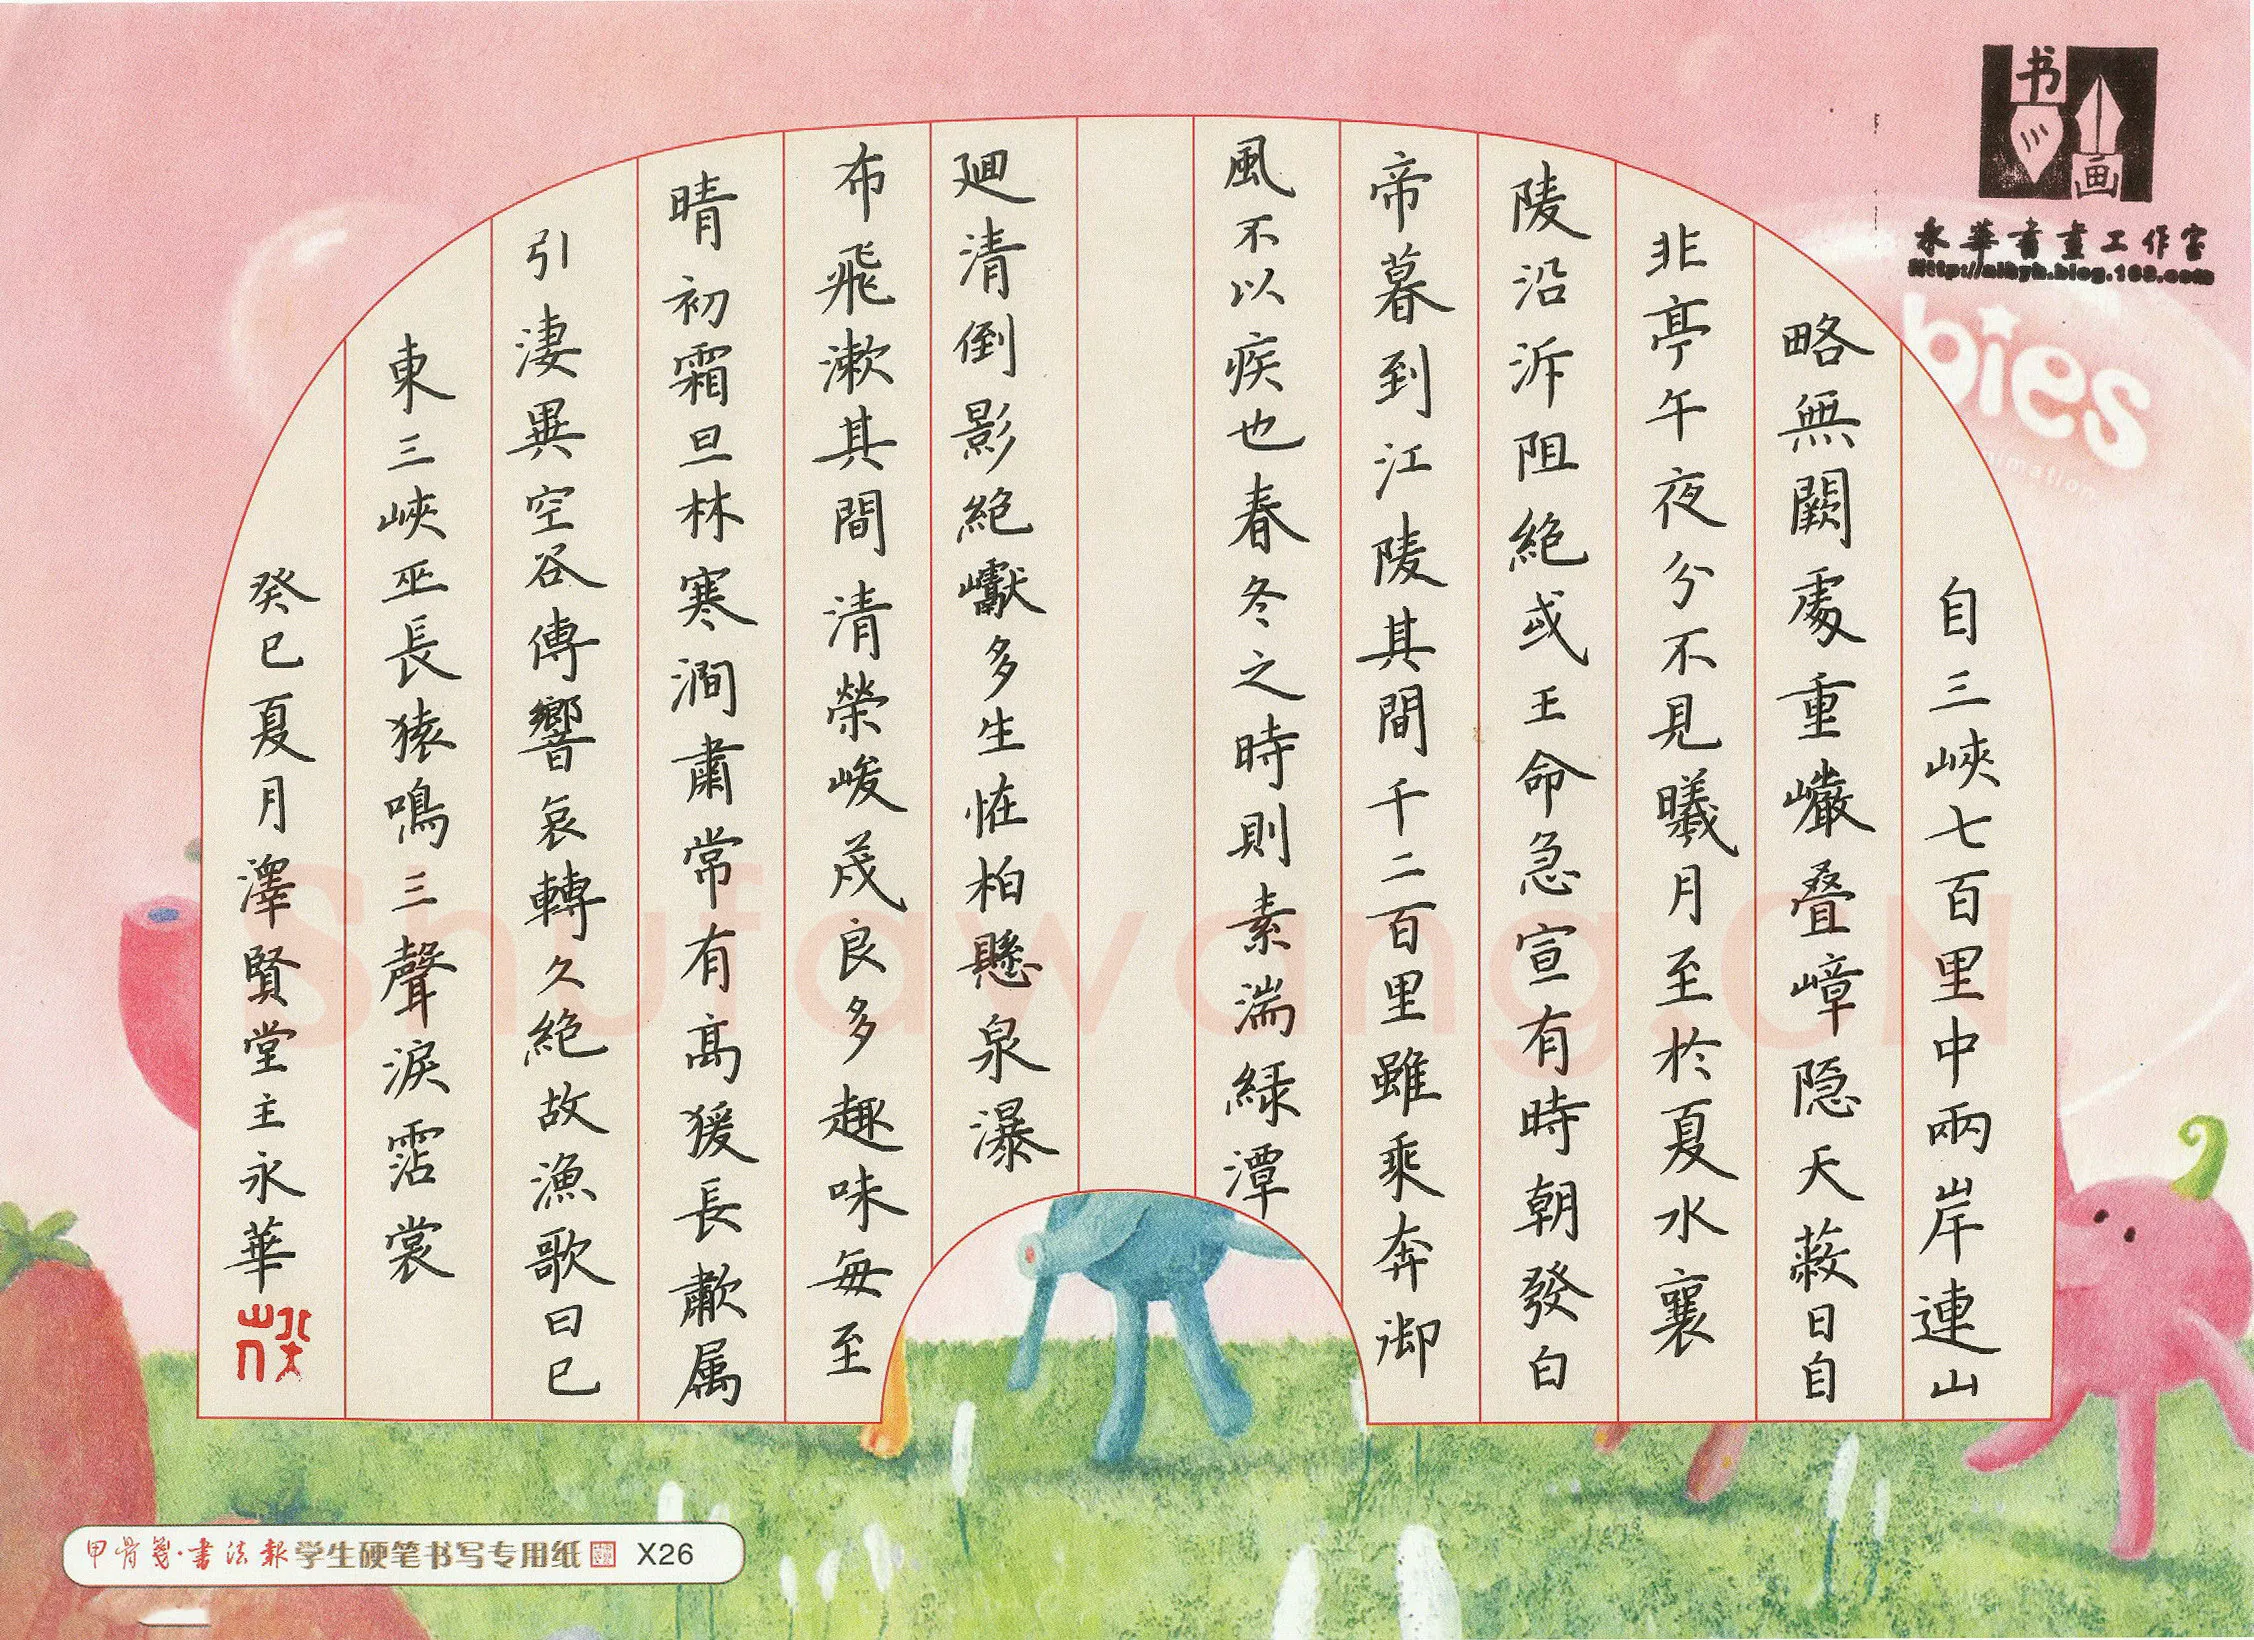 自三峽七百里中兩岸連山
略無闕處重巗叠嶂隐天蔽日自
非亭午夜分不見曦月至於夏水襄
陵沿泝阻絕或王命急宣有時朝發白
帝暮到江陵其間千二百里雖乘奔御
風不以疾也春冬之時則素湍緑潭
廻清倒影絕巘多生恠柏懸泉瀑
布飛漱其間清榮峻茂良多趣味每至
晴初霜旦林寒澗肅常有高猨長歗属
引淒異空谷傳響哀轉久絕故漁歌曰巴
東三峽巫長猿鳴三聲淚霑裳
癸巳夏月澤賢堂主永華
书画
永華書畫工作室
bies
Shufawang.CN
甲骨箋·書法報学生硬笔书写专用纸 X26